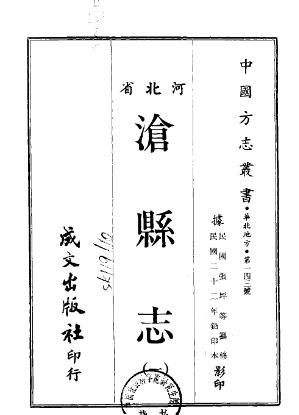 中國方志叢書•華北地方•第一四三號
據民國張坪等纂修
民國二十二年鉛印本影印
河北省
滄縣志(一)
成文出版社印行